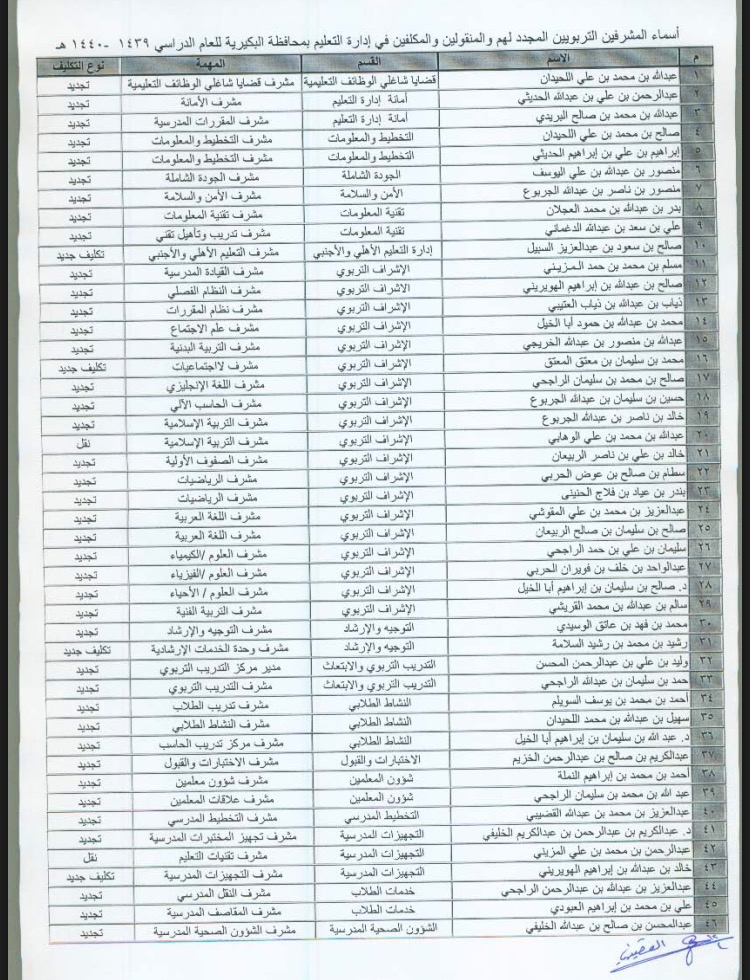 أسماء المشرفين التربويين المجدد لهم والمنقولين والمكلفين في إدارة التعليم بمحافظة البكيرية للعام الدراسي ١٤٣٩ -١٤٤٠ هـ
م الاسم القسم المهمة نوع التكليف
١ عبدالله بن محمد بن علي اللحيدان قضايا شاغلي الوظائف التعليمية مشرف قضايا شاغلي الوظائف التعليمية تجديد
٢ عبدالرحمن بن علي بن عبدالله الحديثي أمانة إدارة التعليم مشرف الأمانة تجديد
٣ عبدالله بن محمد بن صالح البريدي أمانة إدارة التعليم مشرف المقررات المدرسية تجديد
٤ صالح بن محمد بن علي اللحيدان التخطيط والمعلومات مشرف التخطيط والمعلومات تجديد
٥ إبراهيم بن علي بن إبراهيم الحديثي التخطيط والمعلومات مشرف التخطيط والمعلومات تجديد
٦ منصور بن عبدالله بن علي اليوسف الجودة الشاملة مشرف الجودة الشاملة تجديد
٧ منصور بن ناصر بن عبدالله الجربوع الأمن والسلامة مشرف الأمن والسلامة تجديد
٨ بدر بن عبدالله بن محمد العجلان تقنية المعلومات مشرف تقنية المعلومات تجديد
٩ علي بن سعد بن عبدالله الدغماني تقنية المعلومات مشرف تدريب وتأهيل تقني تجديد
١٠ صالح بن سعود بن عبدالعزيز السبيل إدارة التعليم الأهلي والأجنبي مشرف التعليم الأهلي والأجنبي تكليف جديد
١١ مسلم بن محمد بن حمد المـزيـني الإشراف التربوي مشرف القيادة المدرسية تجديد
١٢ صالح بن عبدالله بن إبراهيم الهويريني الاشراف التربوي مشرف النظام الفصلي تجديد
١٣ ذياب بن عبدالله بن ذياب العتيبي الإشراف التربوي مشرف نظام المقررات تجديد
١٤ محمد بن عبدالله بن حمود أبا الخيل الإشراف التربوي مشرف علم الاجتماع تجديد
١٥ عبدالله بن منصور بن عبدالله الخريجي الإشراف التربوي مشرف التربية البدنية تجديد
١٦ محمد بن سليمان بن معتق المعتق الإشراف التربوي مشرف لااجتماعيات تكليف جديد
١٧ صالح بن محمد بن سليمان الراجحي الإشراف التربوي مشرف اللغة الإنجليزي تجديد
١٨ حسين بن سليمان بن عبدالله الجربوع الإشراف التربوي مشرف الحاسب الآلي تجديد
١٩ خالد بن ناصر بن عبدالله الجربوع الإشراف التربوي مشرف التربية الإسلامية تجديد
٢٠ عبدالله بن محمد بن علي الوهابي الإشراف التربوي مشرف التربية الإسلامية نقل
٢١ خالد بن علي بن ناصر الربيعان الإشراف التربوي مشرف الصفوف الأولية تجديد
٢٢ سطام بن صالح بن عوض الحربي الإشراف التربوي مشرف الرياضيات تجديد
٢٣ بندر بن عياد بن فلاج الحنينى الإشراف التربوي مشرف الرياضيات تجديد
٢٤ عبدالعزيز بن محمد بن علي المقوشي الإشراف التربوي مشرف اللغة العربية تجديد
٢٥ صالح بن سليمان بن صالح الربيعان الإشراف التربوي مشرف اللغة العربية تجديد
٢٦ سليمان بن علي بن حمد الراجحي الإشراف التربوي مشرف العلوم /الكيمياء تجديد
٢٧ عبدالواحد بن خلف بن فويران الحربي الإشراف التربوي مشرف العلوم /الفيزياء تجديد
٢٨ د. صالح بن سليمان بن إبراهيم أبا الخيل الإشراف التربوي مشرف العلوم / الأحياء تجديد
٢٩ سالم بن عبدالله بن محمد القريشي الإشراف التربوي مشرف التربية الفنية تجديد
٣٠ محمد بن فهد بن عاتق الوسيدي التوجيه والإرشاد مشرف التوجيه والإرشاد تجديد
٣١ رشيد بن محمد بن رشيد السلامة التوجيه والإرشاد مشرف وحدة الخدمات الإرشادية تكليف جديد
٣٢ وليد بن علي بن عبدالرحمن المحسن التدريب التربوي والابتعاث مدير مركز التدريب التربوي تجديد
٣٣ حمد بن سليمان بن عبدالله الراجحي التدريب التربوي والابتعاث مشرف التدريب التربوي تجديد
٣٤ أحمد بن محمد بن يوسف السويلم النشاط الطلابي مشرف تدريب الطلاب تجديد
٣٥ سهيل بن عبدالله بن محمد اللحيدان النشاط الطلابي مشرف النشاط الطلابي تجديد
٣٦ د. عبد الله بن سليمان بن إبراهيم أبا الخيل النشاط الطلابي مشرف مركز تدريب الحاسب تجديد
٣٧ عبدالكريم بن صالح بن عبدالرحمن الخزيم الاختبارات والقبول مشرف الاختبارات والقبول تجديد
٣٨ أحمد بن محمد بن إبراهيم النملة شؤون المعلمين مشرف شؤون معلمين تجديد
٣٩ عبد الله بن محمد بن سليمان الراجحي شؤون المعلمين مشرف علاقات المعلمين تجديد
٤٠ عبدالعزيز بن محمد بن عبدالله القضيبي التخطيط المدرسي مشرف التخطيط المدرسي تجديد
٤١ د. عبدالكريم بن عبدالرحمن بن عبدالكريم الخليفي التجهيزات المدرسية مشرف تجهيز المختبرات المدرسية تجديد
٤٢ عبدالرحمن بن محمد بن علي المزيني التجهيزات المدرسية مشرف تقنيات التعليم نقل
٤٣ خالد بن عبدالله بن إبراهيم الهويريني التجهيزات المدرسية مشرف التجهيزات المدرسية تكليف جديد
٤٤ عبدالعزيز بن عبدالله بن عبدالرحمن الراجحي خدمات الطلاب مشرف النقل المدرسي تجديد
٤٥ علي بن محمد بن إبراهيم العبودي خدمات الطلاب مشرف المقاصف المدرسية تجديد
٤٦ عبدالمحسن بن صالح بن عبدالله الخليفي الشؤون الصحية المدرسية مشرف الشؤون الصحية المدرسية تجديد